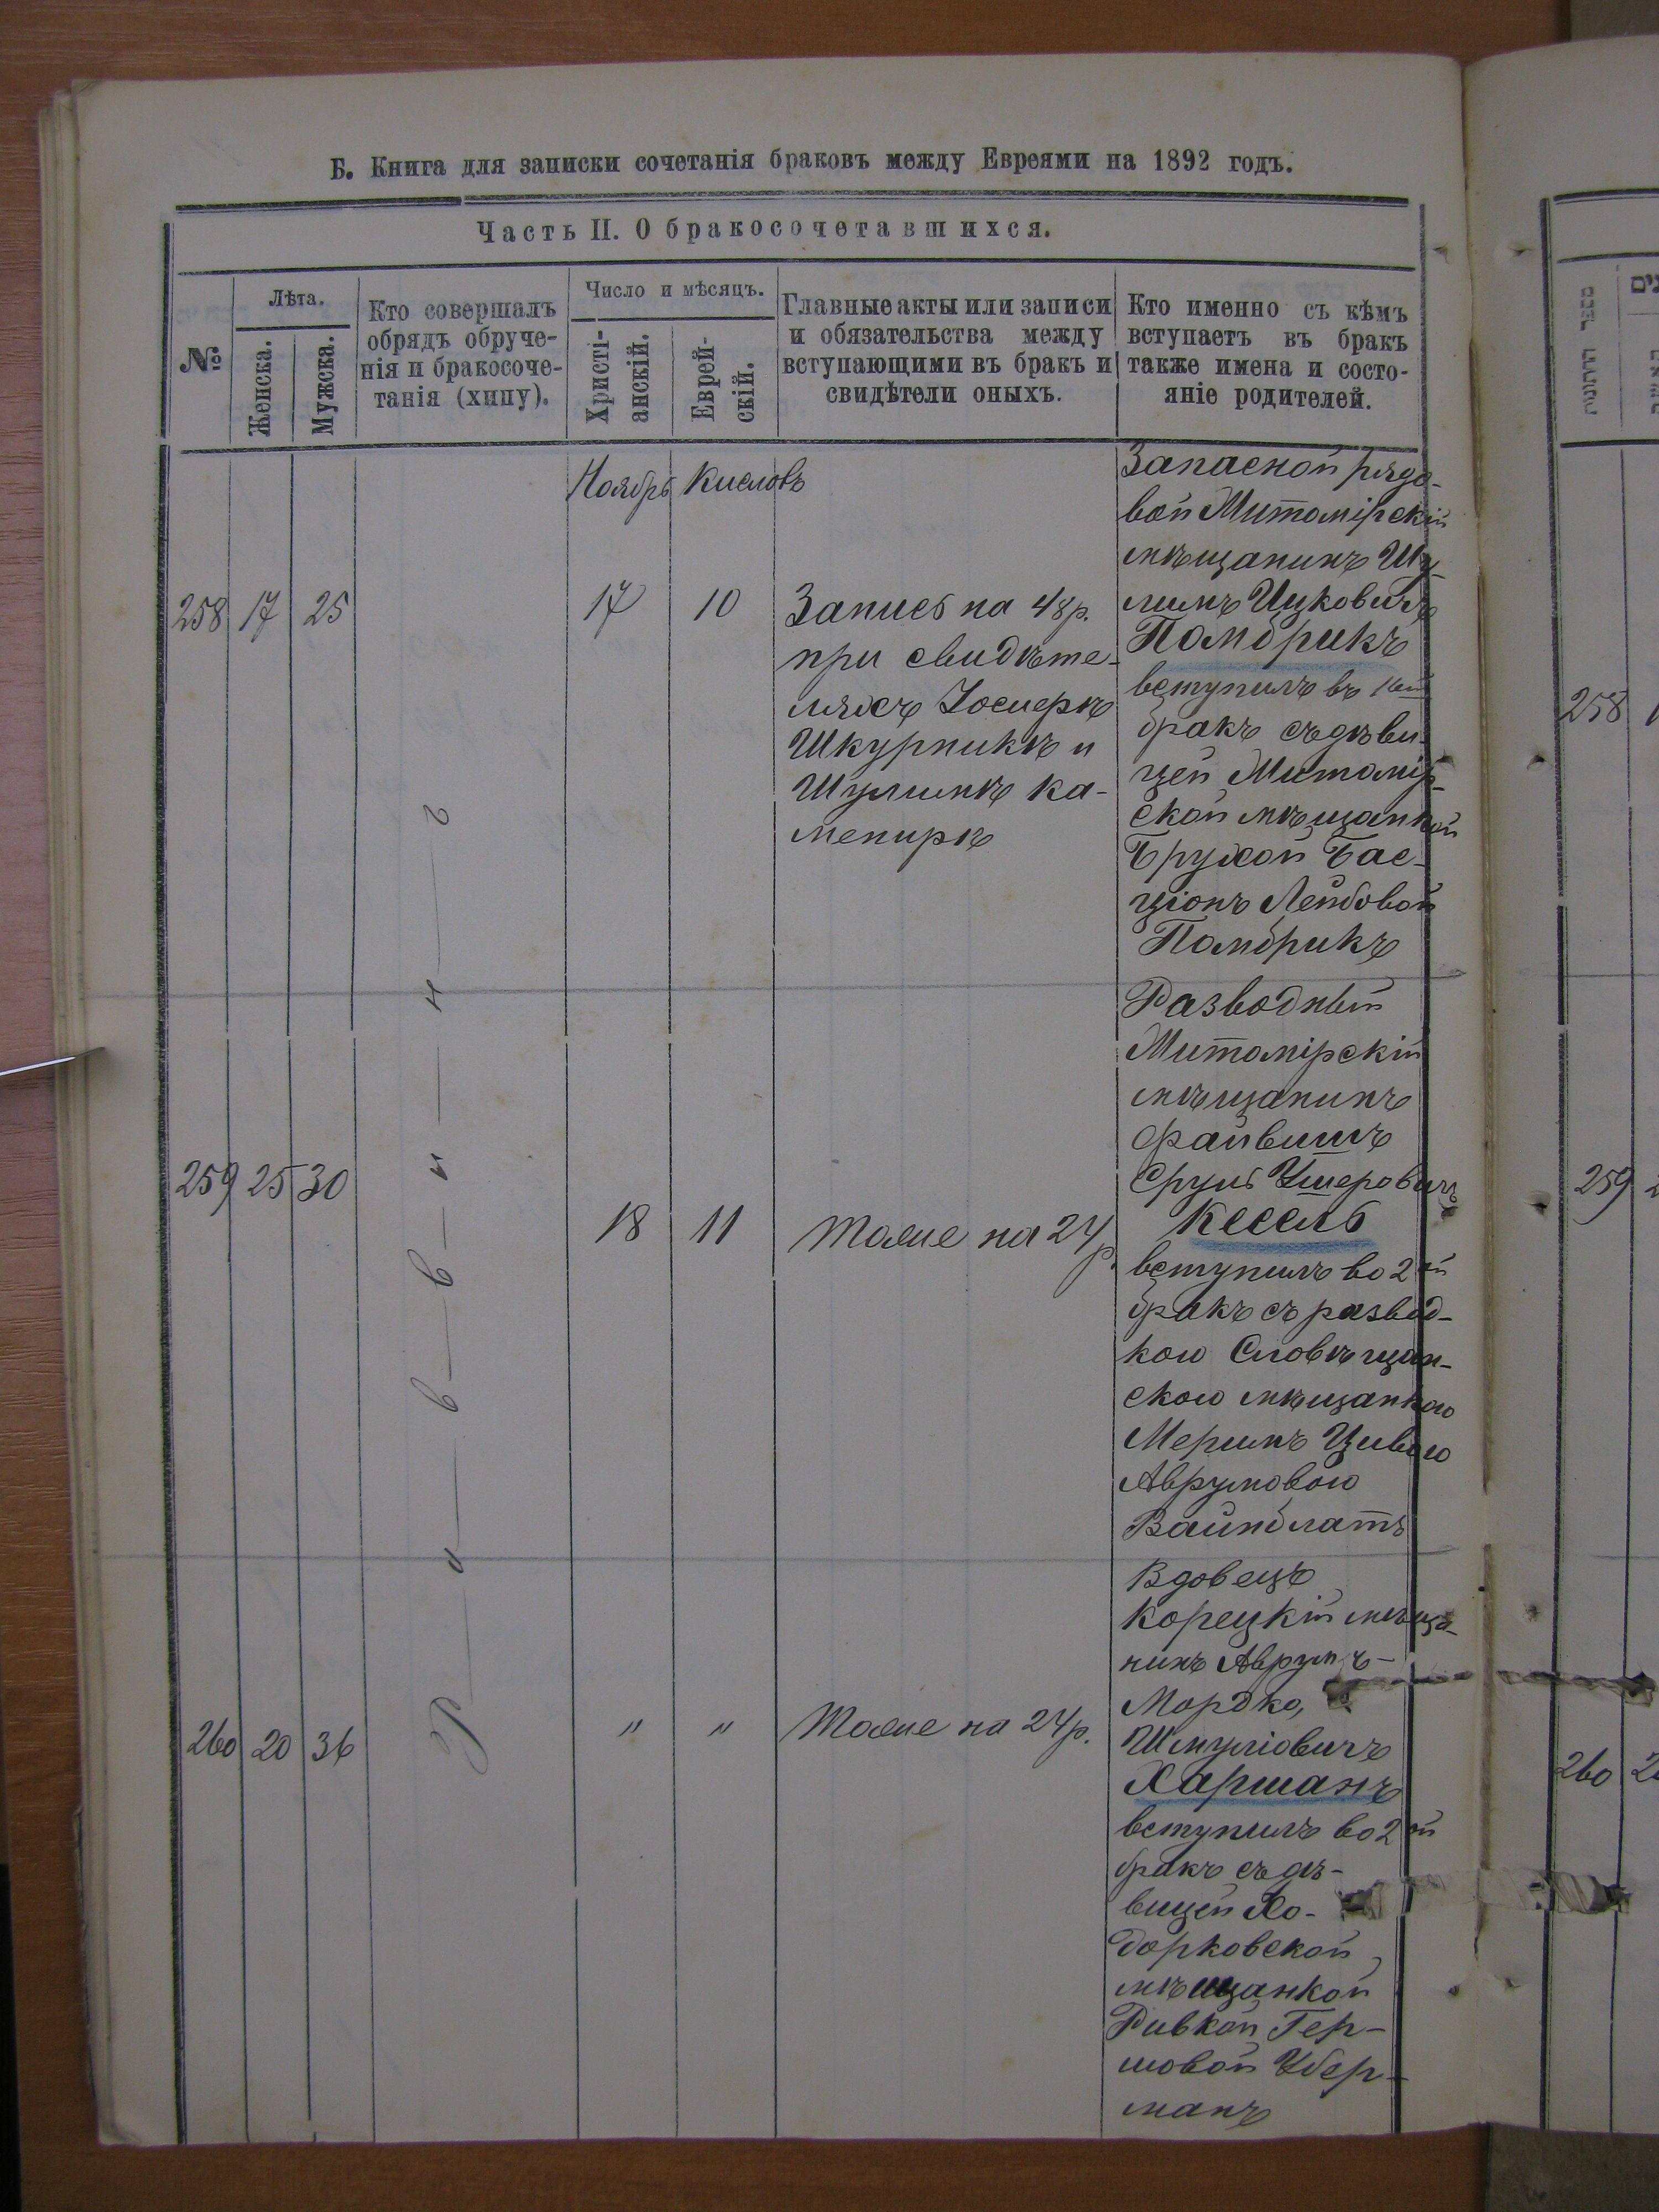 Б. Книга для записки сочетанія браковъ между Евреями на 1892 годъ.
Часть II. О бракосочетавшихся.
№
Лѣта.
Женска.
Мужска.
Кто совершалъ
обрядъ обруче-
нія и бракосоче-
танія (хипу).
Число и мѣсяцъ.
Христі-
анскій.
Еврей-
скій.
Главные акты или записи
и обязательства между
вступающими въ бракъ и
свидѣтели оныхъ.
Кто именно съ кѣмъ
вступаетъ въ бракъ
также имена и состо-
яніе родителей.
Ноябрь Кислевъ
Раввинъ
258 17 25
17 10
Запись на 48 р.
при свидѣте-
ляхъ Іосперѣ
Шкурникѣ и
Шулимѣ Ка-
менирѣ
Запасной рядо-
вой Житомірскій
мѣщанинъ Шу-
лимъ Ицковичъ
Помбрикъ
вступилъ въ 1ый
бракъ съ дѣви-
цей Житомір-
ской мѣщанкой
Брухой Бас-
ціонъ Лейбовой
Помбрикъ
259 25 30
18 11
Тоже на 24 р.
Разводный
Житомірскій
мѣщанинъ
Файвишъ
Сруль Ушеровичъ
Кесель
вступилъ во 2ой
бракъ съ развод-
кою Словѣчан-
скою мѣщанкою
Меримъ Цивою
Аврумовою
Вайнблатъ
260 20 36
" "
Тоже на 24 р.
Вдовецъ
Корецкій мѣща-
нинъ Аврумъ-
Мордко,
Шмуліовичъ
Харшанъ
вступилъ во 2ой
бракъ съ дѣ-
вицей Хо-
дорковской
мѣщанкой
Ривкой Гер-
шовой Уберманъ
258
259
260